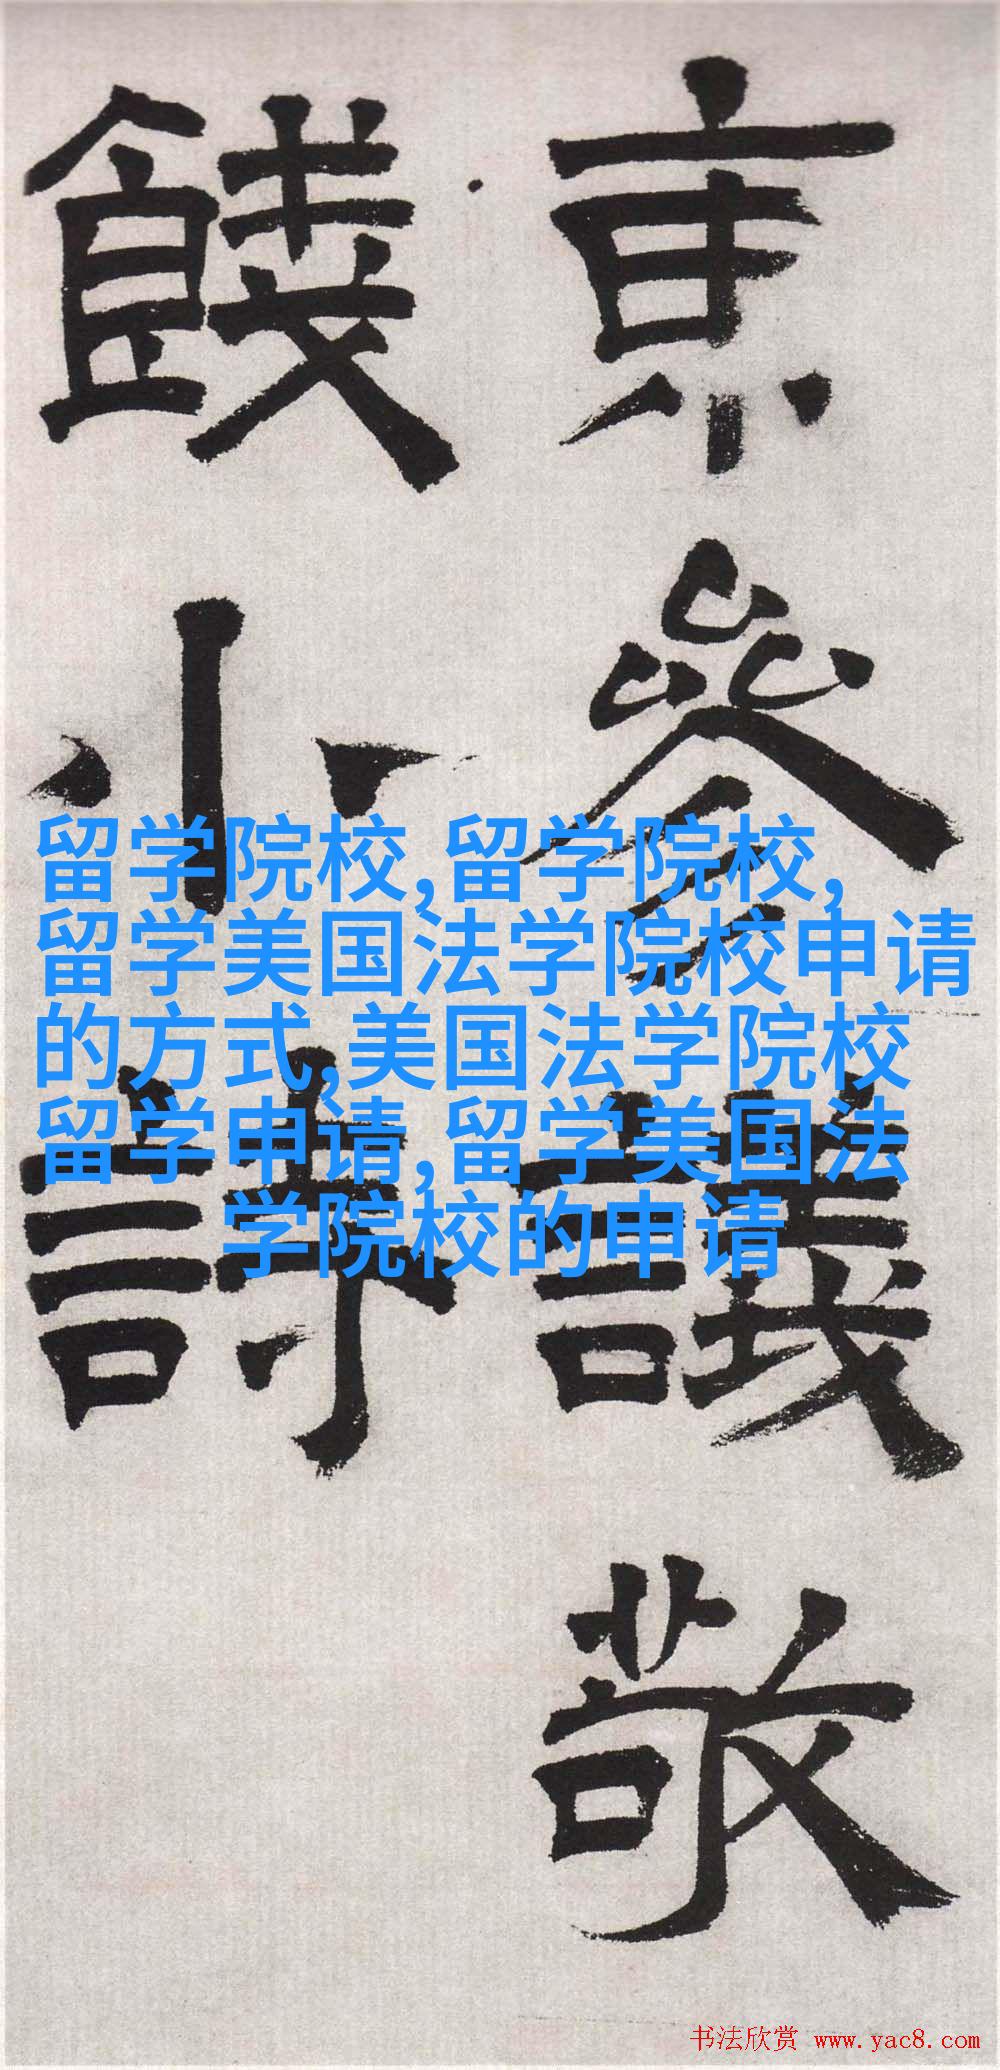 京參議敬
餞小詩
留学院校,留学院校,
留学美国法学院校申请
的方式,美国法学院校
留学申请,留学美国法
学院校的申请
书法欣赏 www.yac8.com